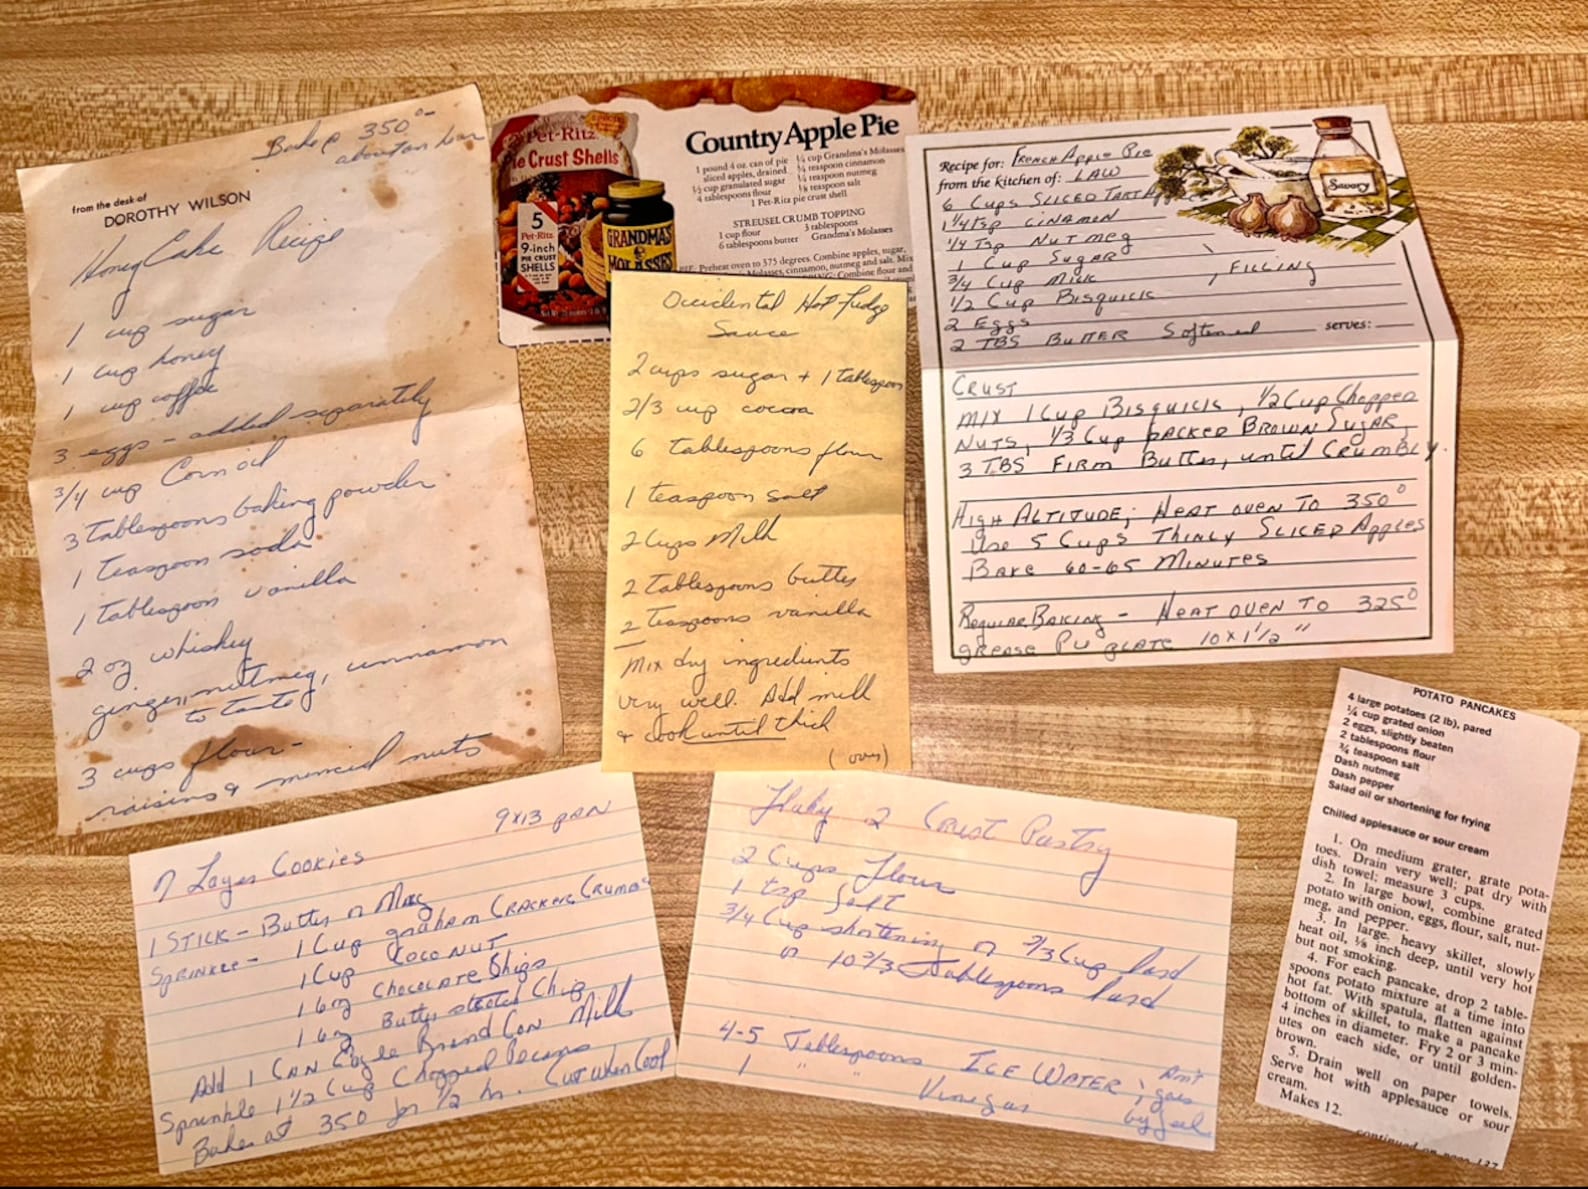 Bake @ 350°-
about an hour
from the desk of
DOROTHY WILSON
Honey Cake Recipe
1 cup sugar
1 cup honey
1 cup coffee
3 eggs - added separately
3/4 cup Corn oil
3 Tablespoons baking powder
1 Teaspoon soda
1 Tablespoon vanilla
2 oz whiskey
ginger, nutmeg, cinnamon
to taste
3 cups flour-
raisins & minced nuts
Pet-Ritz
Pie Crust Shells
5
Pet-Ritz
9-inch
PIE CRUST
SHELLS
GRANDMA'S
MOLASSES
Country Apple Pie
1 pound 4 oz. can of pie
sliced apples, drained
1/2 cup granulated sugar
4 tablespoons flour
1/4 cup Grandma's Molasses
1/4 teaspoon cinnamon
1/4 teaspoon nutmeg
1/8 teaspoon salt
1 Pet-Ritz pie crust shell
STREUSEL CRUMB TOPPING
1 cup flour
6 tablespoons butter
3 tablespoons
Grandma's Molasses
Preheat oven to 375 degrees. Combine apples, sugar,
Molasses, cinnamon, nutmeg and salt. Mix
Combine flour and
Occidental Hot Fudge
Sauce
2 cups sugar + 1 tablespoon
2/3 cup cocoa
6 tablespoons flour
1 teaspoon salt
2 Cups Milk
2 Tablespoons butter
2 Teaspoons vanilla
Mix dry ingredients
very well. Add milk
& cook until thick
(over)
Recipe for: FRENCH Apple Pie
from the kitchen of: LAW
6 Cups SLICED TART
1 1/4 Tsp CINAMON
1/4 Tsp NUTMEG
1 Cup SUGAR
3/4 Cup MILK , FILLING
1/2 Cup BISQUICK
2 Eggs
2 TBS BUTTER Softened serves:
Savory
CRUST
MIX 1 Cup BISQUICK, 1/2 Cup Chopped
NUTS, 1/3 Cup PACKED BROWN SUGAR,
3 TBS FIRM Butter, until CRUMBLY.
HIGH ALTITUDE; HEAT OVEN TO 350°
Use 5 Cups THINLY SLICED Apples
BAKE 60-65 MINUTES
Regular BAKING - HEAT OVEN TO 325°
GREASE PIE PLATE 10 x 1 1/2"
9x13 pan
7 Layer Cookies
1 STICK - Butter or Marg
Sprinkle - 1 Cup graham CRACKERS CRUMBS
1 Cup COCONUT
1 6oz Chocolate Chips
1 6oz Butterscotch Chip
Add 1 CAN Eagle Brand CON Milk
Sprinkle 1 1/2 Cup Chopped Pecans
Bake at 350 for 1/2 hr. Cut when Cool
Flaky 2 Crust Pastry
2 Cups Flour
1 tsp Salt
3/4 Cup shortening or 2/3 Cup lard
or 10 2/3 Tablespoons lard
4-5 Tablespoons ICE WATER ;
1 " " Vinegar
goes
by feel
POTATO PANCAKES
4 large potatoes (2 lb), pared
1/4 cup grated onion
2 eggs, slightly beaten
2 tablespoons flour
3/4 teaspoon salt
Dash nutmeg
Dash pepper
Salad oil or shortening for frying
Chilled applesauce or sour cream
1. On medium grater, grate pota-
toes. Drain very well; pat dry with
dish towel; measure 3 cups.
2. In large bowl, combine grated
potato with onion, eggs, flour, salt, nut-
meg, and pepper.
3. In large, heavy skillet, slowly
heat oil, 1/8 inch deep, until very hot
but not smoking.
4. For each pancake, drop 2 table-
spoons potato mixture at a time into
hot fat. With spatula, flatten against
bottom of skillet, to make a pancake
4 inches in diameter. Fry 2 or 3 min-
utes on each side, or until golden-
brown.
5. Drain well on paper towels.
Serve hot with applesauce or sour
cream.
Makes 12.
continued on page 137